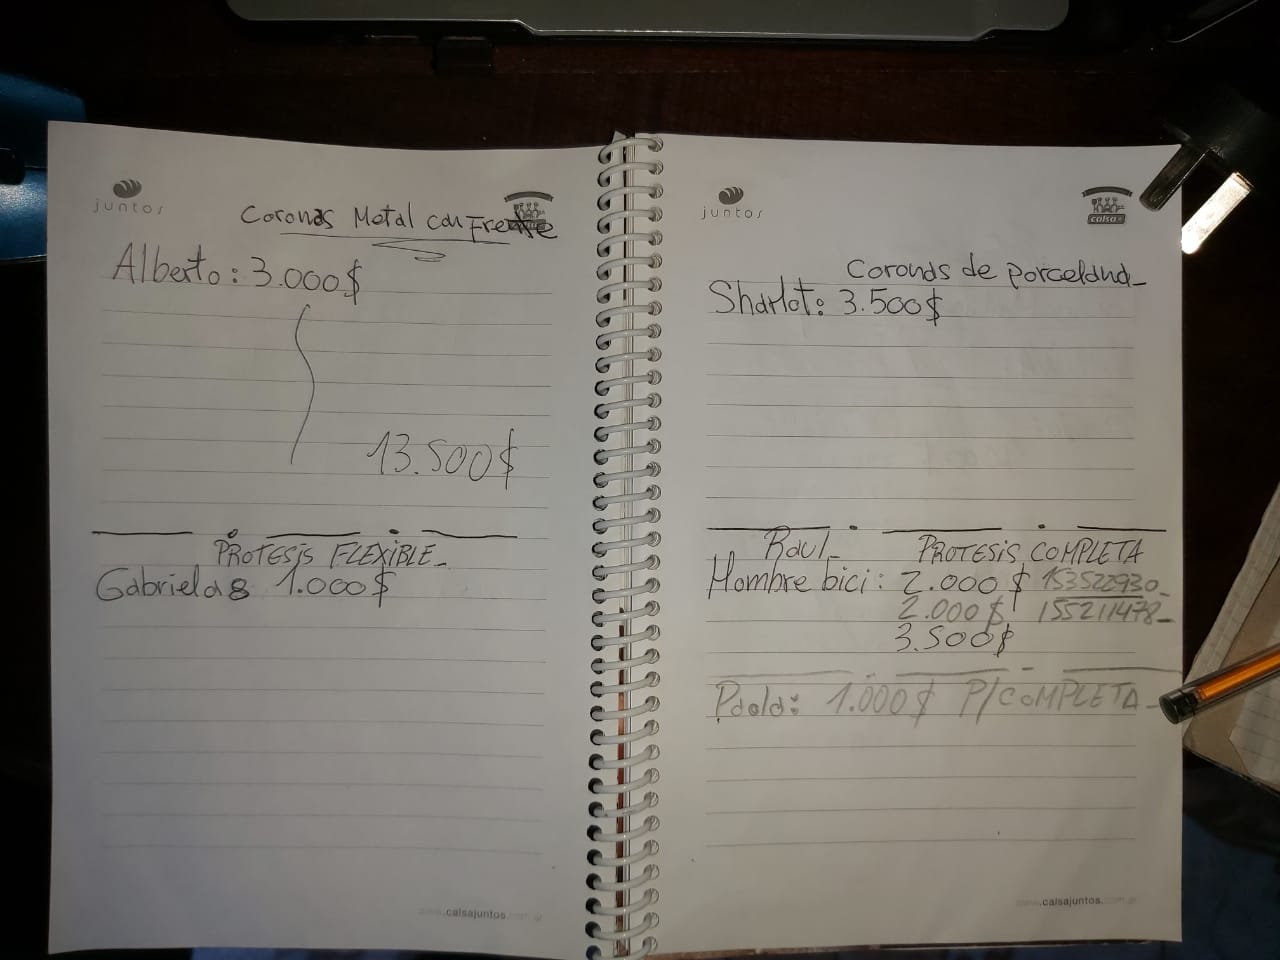 juntos
Coronas Metal con Frente
Alberto: 3.000$
13.500$
PROTESIS FLEXIBLE
Gabriela: 1.000$
www.calsajuntos.com.ar
juntos
calsa
Coronas de porcelana
Sharlot: 3.500$
Raul PROTESIS COMPLETA
Hombre bici: 2.000$ 153522930
2.000$ 155211478
3.500$
Paola: 1.000$ P/COMPLETA
www.calsajuntos.com.ar